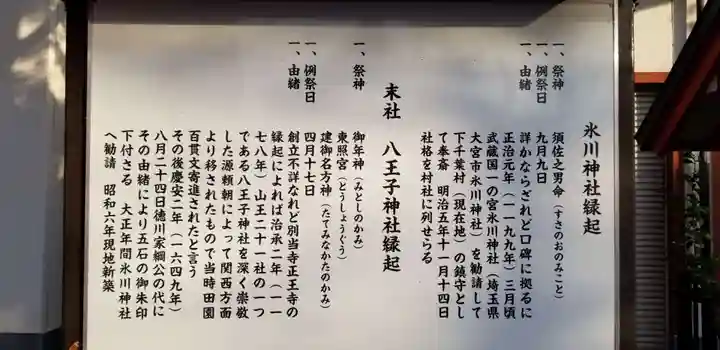 氷川神社縁起
一、祭神 須佐之男命（すさのおのみこと）
一、例祭日 九月九日
一、由緒 詳かならざれど口碑に拠るに
正治元年（一一九九年）三月頃
武蔵国一の宮氷川神社（埼玉県
大宮市氷川神社）を勧請して
下千葉村（現在地）の鎮守とし
て奉斎 明治五年十一月十四日
社格を村社に列せらる
末社 八王子神社縁起
一、祭神 御年神（みとしのかみ）
東照宮（とうしょうぐう）
建御名方神（たてみなかたのかみ）
一、例祭日 四月十七日
一、由緒 創立不詳なれど別当寺正王寺の
縁起によれば治承二年（一一
七八年）山王二十一社の一つ
である八王子神社を深く崇敬
した源頼朝によって関西方面
より移されたもので当時田園
百貫文寄進されたと言う
その後慶安二年（一六四九年）
八月二十四日徳川家綱公の代に
その由緒により五石の御朱印
下付さる 大正年間氷川神社
へ勧請 昭和六年現地新築